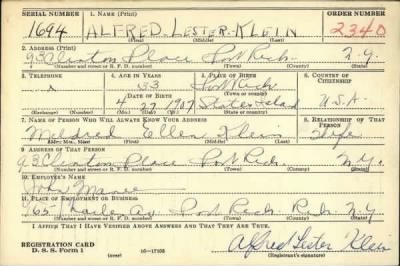 SERIAL NUMBER 1. NAME (Print) ORDER NUMBER
1694 ALFRED LESTER KLEIN 2340
(First) (Middle) (Last)
2. ADDRESS (Print)
93 Clinton Place Port Rich. N.Y.
(Number and street or R. F. D. number) (Town) (County) (State)
3. TELEPHONE 4. AGE IN YEARS 5. PLACE OF BIRTH 6. COUNTRY OF CITIZENSHIP
x 33 Port Rich.
DATE OF BIRTH (Town or county)
4 27 1907 Staten Island U.S.A.
(Mo.) (Day) (Yr.) (State or country)
7. NAME OF PERSON WHO WILL ALWAYS KNOW YOUR ADDRESS 8. RELATIONSHIP OF THAT PERSON
Mildred Ellen Klein Wife
(Mr., Mrs., Miss) (First) (Middle) (Last)
9. ADDRESS OF THAT PERSON
93 Clinton Place Port Rich. N.Y.
(Number and street or R. F. D. number) (Town) (County) (State)
10. EMPLOYER'S NAME
John
11. PLACE OF EMPLOYMENT OR BUSINESS
165 Av Port Rich. Rich N.Y.
(Number and street or R. F. D. number) (Town) (County) (State)
I AFFIRM THAT I HAVE VERIFIED ABOVE ANSWERS AND THAT THEY ARE TRUE.
REGISTRATION CARD
D. S. S. Form 1 (over) 16—17105 Alfred Lester Klein
(Registrant's signature)